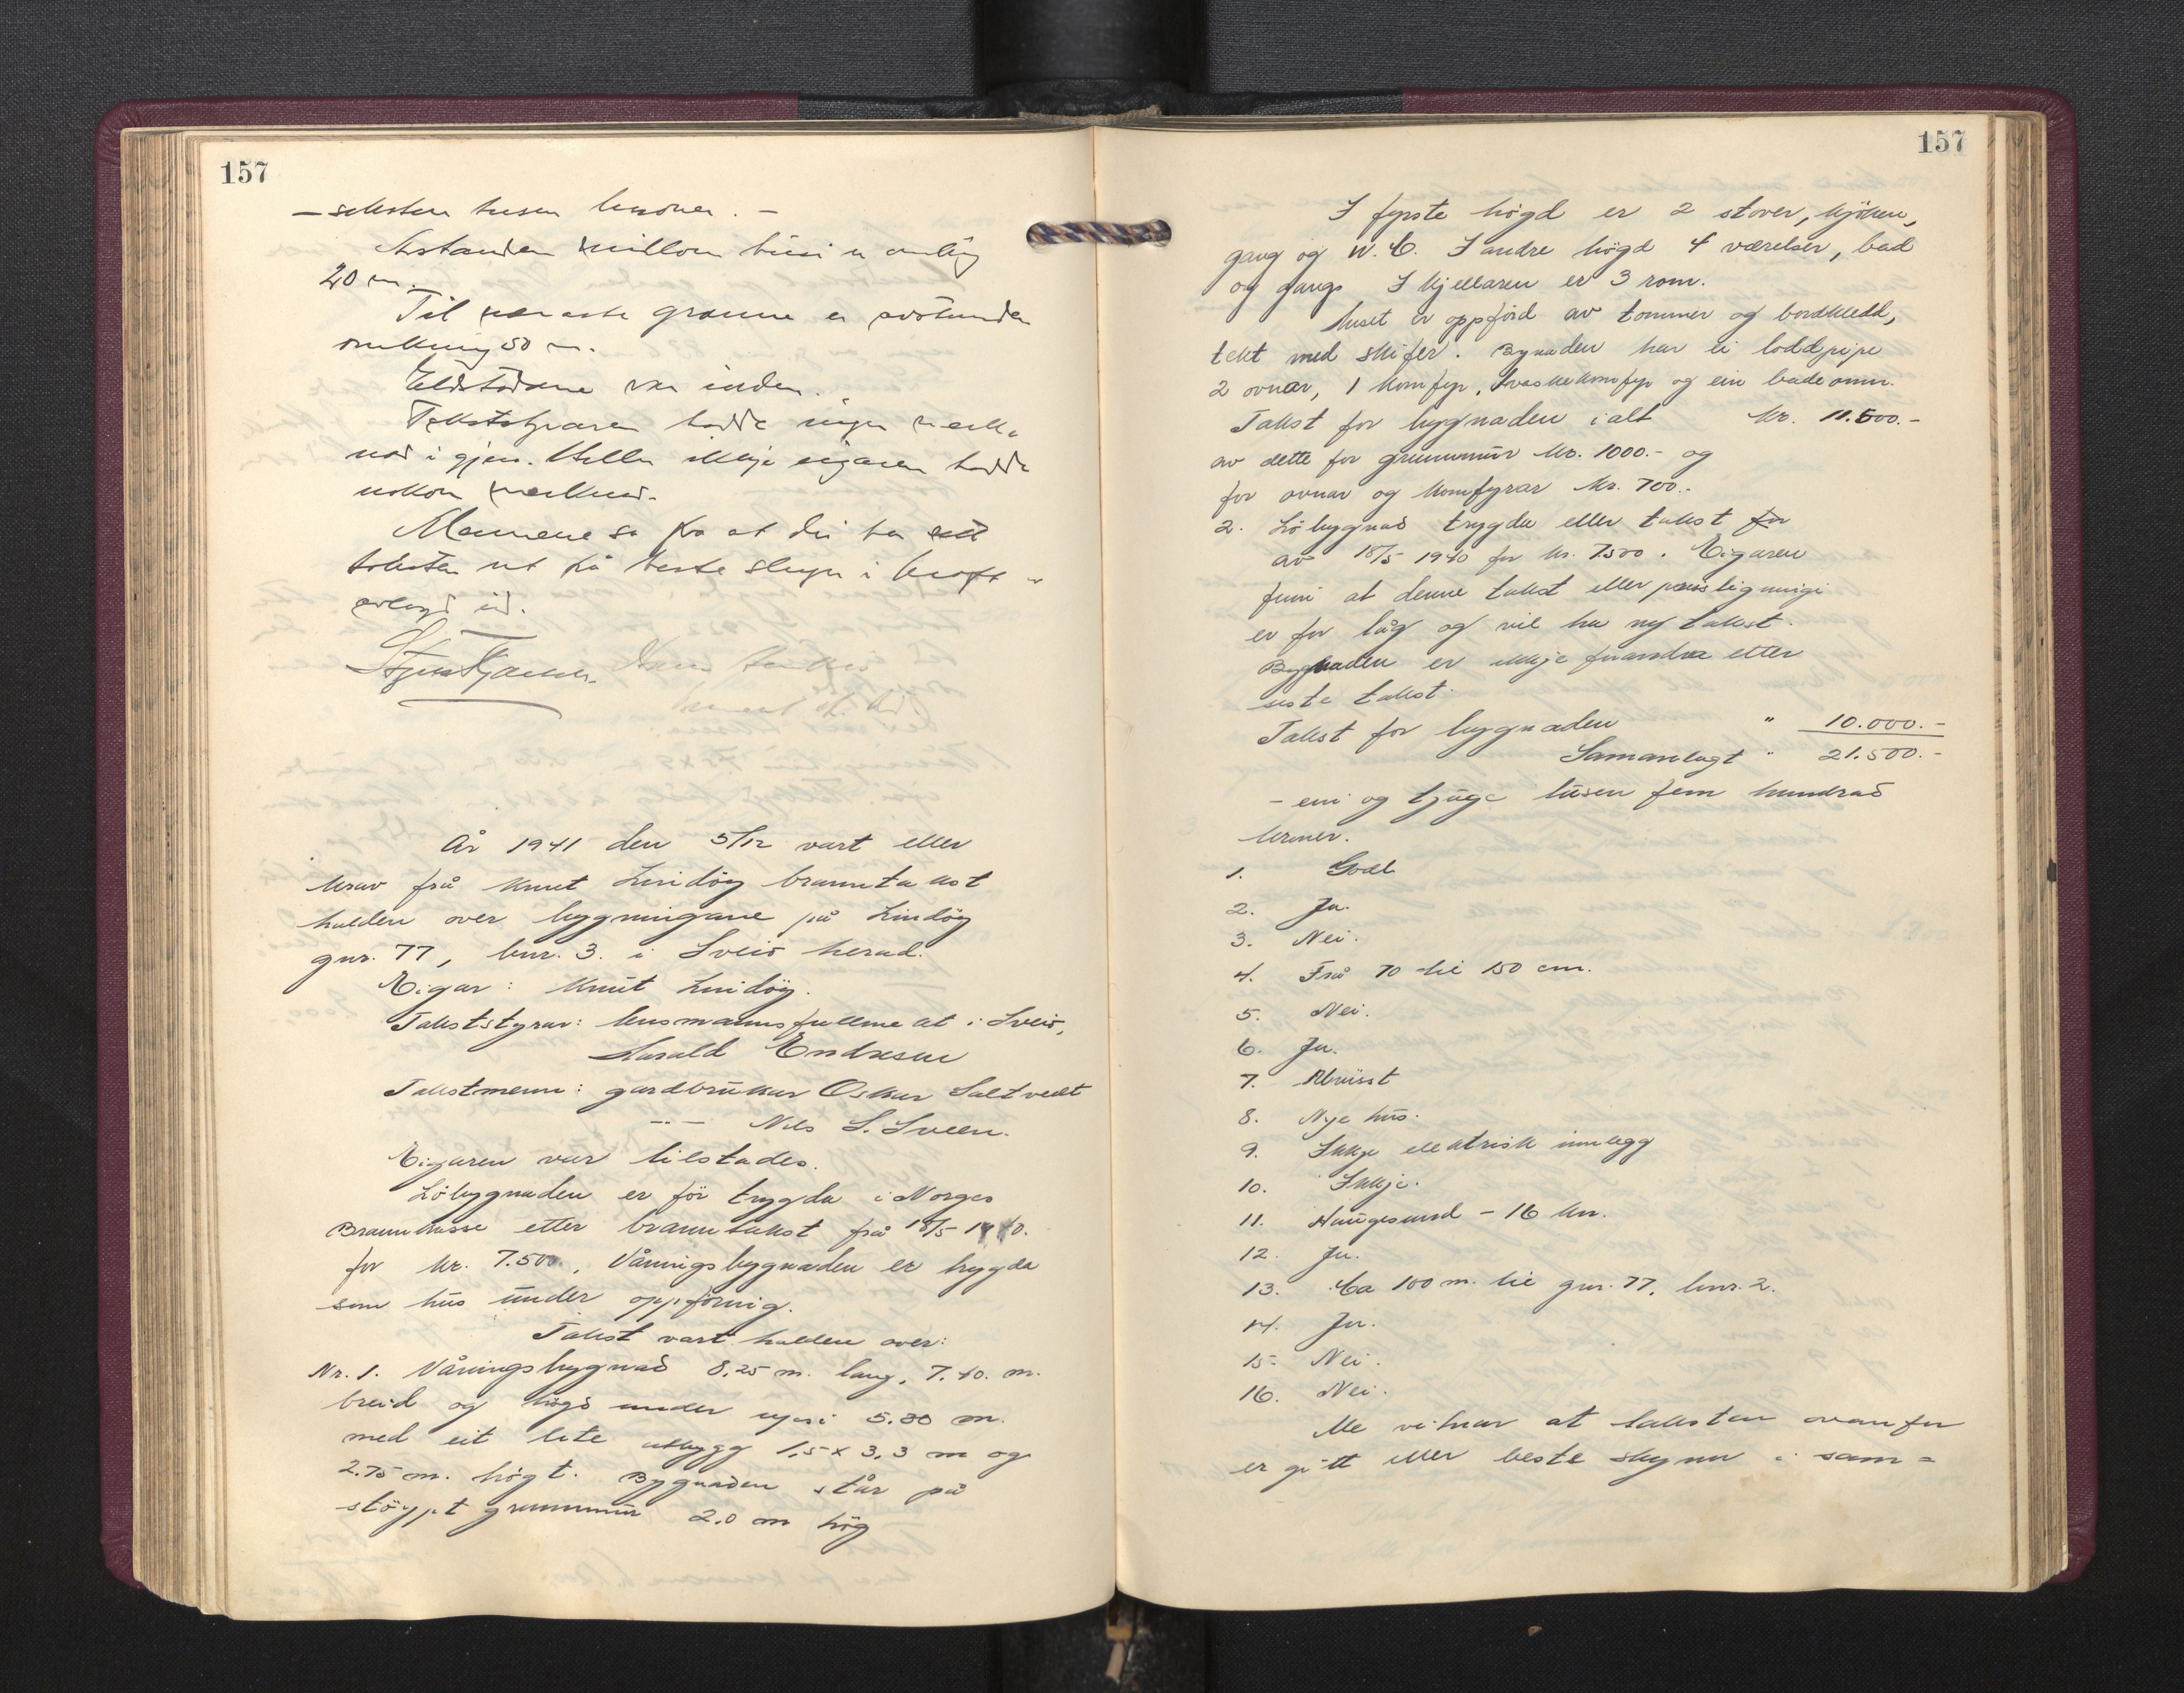 157
- seksten tusen kroner. -
Avstanden millom husi er omlag
20 m.
Til næraste granne er avstanden
omkring 50 m.
Eldstadane var i orden.
Takststyraren hadde ingen merk-
nad i gjen. Heller ikkje eigaren hadde
nokon merknad.
Mennene sa fra at dei har sett
taksten ut frå beste skyn i kraft av
avlagd eid.
År 1941 den 5/12 vart etter
krav frå Knut Lindöy branntakst
halden over bygningane på Lindöy
gnr. 77, bnr. 3. i Sveio herad.
Eigar: Knut Lindöy.
Takststyrar: lensmannsfullmekt i Sveio,
Harald Endresen
Takstmenn: gardbrukar Oskar Saltvedt
-"- Nils S. Sveen.
Eigaren var tilstades.
Löbygnaden er för trygda i Norges
Brannkasse etter branntakst frå 18/5-1940.
for kr. 7.500., Våningsbygnaden er trygda
som hus under oppföring.
Takst vart halden over:
Nr. 1. Våningsbygnad 8,25 m. lang, 7.40. m.
breid og högd under upsi 5.80 m.
med eit lite utbygg 1,5 x 3,3 m og
2.75 m. högt. Bygnaden står på
stöypt grunnmur 2.0 m hög
157
I fyrste högd er 2 stover, kjöken,
gang og W.C. I andre högd 4 værelser, bad
og gang. I kjellaren er 3 rom.
Huset er oppförd av tommer og bordkledd,
tekt med skifer. Bynaden har ei loddpipe
2 ovnar, 1 komfyr, 1 vaskekomfyr og ein badeomn.
Takst for bygnaden ialt kr. 11.500.-
av dette for grunnmur kr. 1000.- og
for ovnar og komfyrar kr. 700.-
2. Löbygnad trygda etter takst for
av 18/5 1940 for kr. 7500. Eigaren
finn at denne takst etter prisstigningi
er for låg og vil ha ny takst.
Bygnaden er ikkje forandra etter
siste takst.
Takst for bygnaden " 10.000.-
Samanlagt " 21.500.-
- ein og tjuge tusen fem hundrad
kroner.
1. God
2. Ja.
3. Nei.
4. Frå 70 til 150 cm.
5. Nei.
6. Ja.
7. Ubrüsst
8. Nye hus.
9. Ikkje elektrisk innlegg
10. Ikkje.
11. Haugesund - 16 km.
12. Ja.
13. Ca 100 m. til gnr. 77, bnr. 2.
14. Ja.
15. Nei.
16. Nei.
Me vitnar at taksten ovanfor
er gitt etter beste skynn i sam=